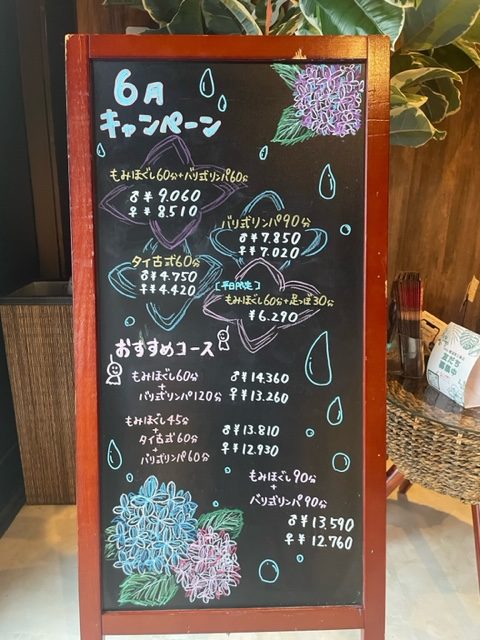 6月
キャンペーン
もみほぐし60分+バリ式リンパ60分
♂¥9.060
♀¥8.510
バリ式リンパ90分
♂¥7.850
♀¥7.020
タイ古式60分
♂¥4.750
♀¥4.420
[平日限定]
もみほぐし60分+足つぼ30分
¥6.290
おすすめコース
もみほぐし60分
+
バリ式リンパ120分
♂¥14.360
♀¥13.260
もみほぐし45分
+
タイ古式60分
+
バリ式リンパ60分
♂¥13.810
♀¥12.930
もみほぐし90分
+
バリ式リンパ90分
♂¥13,590
♀¥12.760
友だち
募集中